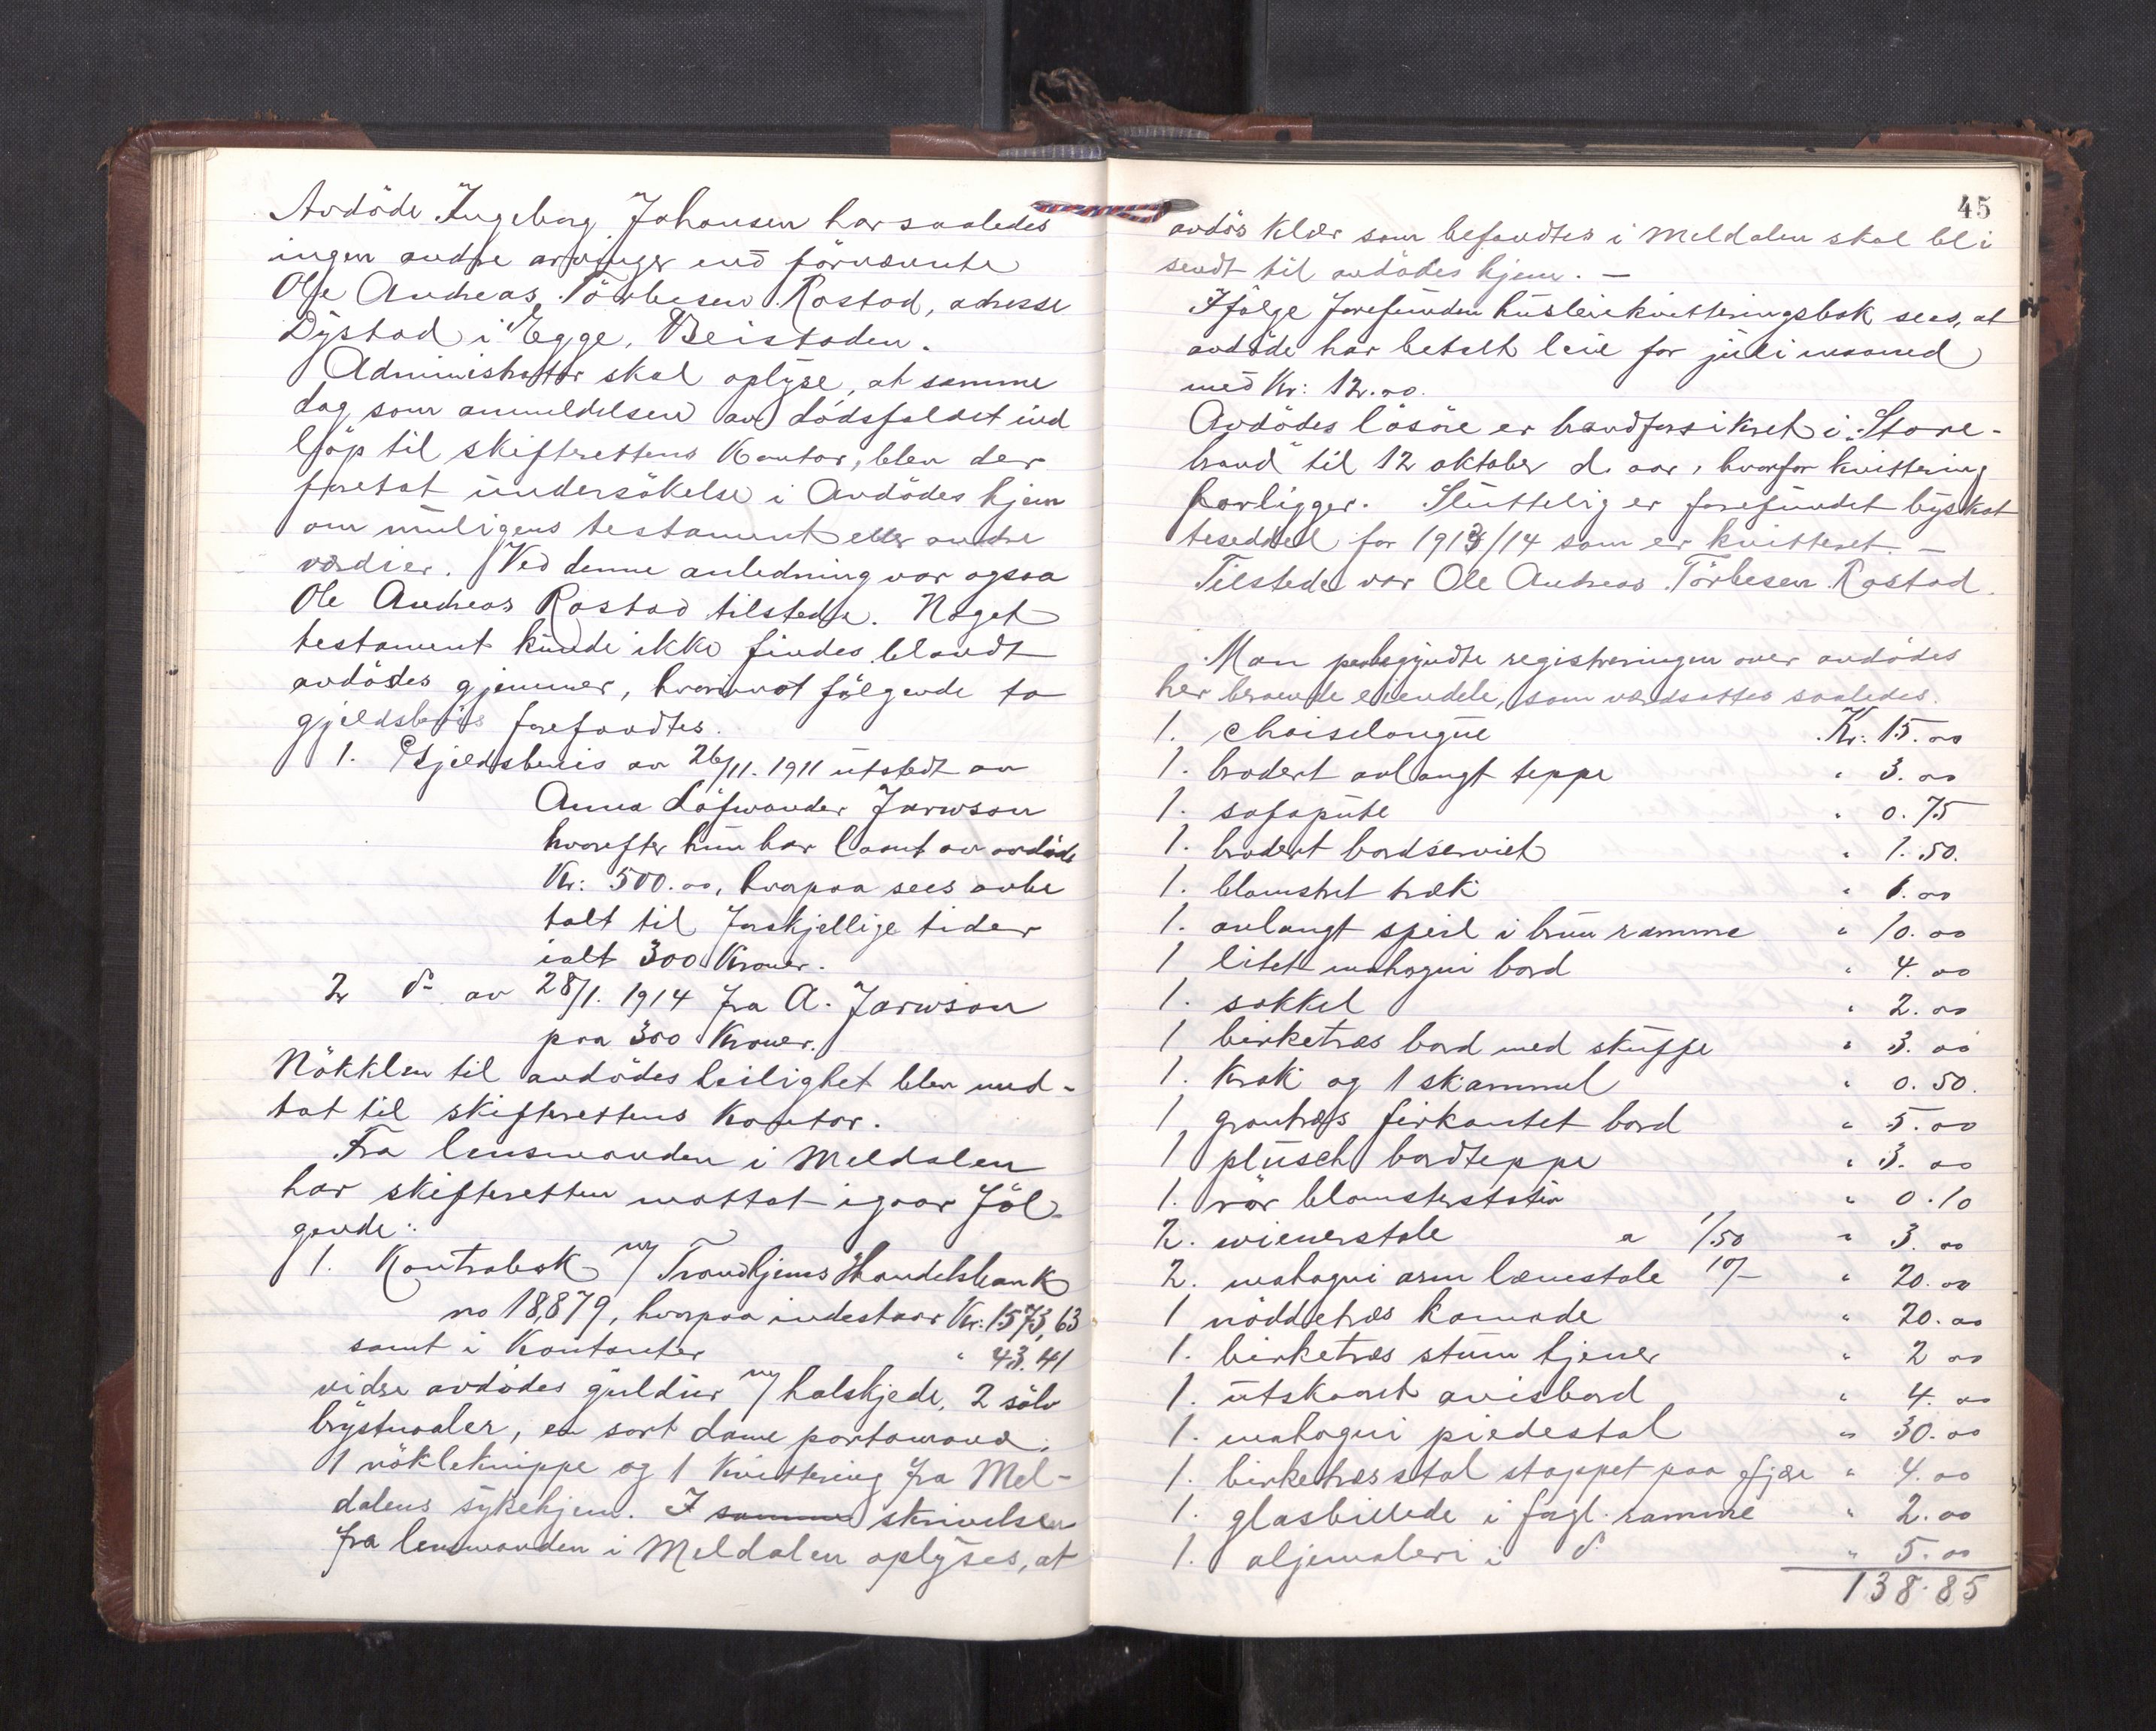 Avdöde Ingeborg Johansen har saaledes
ingen andre arvinger end förnævnte
Ole Andreas Törbesen Rostad, adresse
Dystad i Egge, Beistaden.
Administrator skal oplyse, at samme
dag som anmeldelsen av dödsfaldet ind
löp til skifterettens Kontor, blev der
foretat undersökelse i Avdödes hjem
om muligens testament eller andre
værdier. Ved denne anledning var ogsaa
Ole Andreas Rostad tilstede. Noget
testament kunde ikke findes blandt
avdödes gjemmer, hvorimot fölgende to
gjeldsbevis forefandtes.
1. Gjeldsbevis av 26/11. 1911 utstedt av
Anna Löfwander Jarwson
hvorefter hun har laant av avdöde
Kr: 500.00, hvorpaa sees avbe
talt til forskjellige tider
ialt 300 Kroner.
2 do av 28/1. 1914 fra A. Jarwson
paa 300 Kroner.
Nökklen til avdödes leilighet blev med-
tat til skifterettens Kontor.
Fra lensmanden i Meldalen
har skifteretten mottat igaar föl-
gende:
1. Kontrabok m/ Trondhjems Handelsbank
no 18,879, hvorpaa indestaar Kr: 1573,63
samt i Kontanter " 43.41
vidre avdödes guldur m/ halskjede, 2 sölv
brystnaaler, en sort dame portemonæ.
1 nökleknippe og 1 Kvittering fra Mel-
dalens sykehjem. I samme skrivelse
fra lensmanden i Meldalen oplyses, at
45
avdös klær som befandtes i Meldalen skal bli
sendt til avdödes hjem. —
Ifölge forefunden husleiekvitteringsbok sees, at
avdöde har betalt leie for juli maaned
med Kr: 12.00.
Avdödes lösöre er brandforsikret i "Store-
brand" til 12 oktober d. aar, hvorfor kvittering
forligger. Sluttelig er forefundet byskat
teseddel for 1913/14 som er kvitteret. —
Tilstede var Ole Andreas Törbesen Rostad.
Man paabegyndte registreringen over avdödes
her beroende eiendele, som værdsattes saaledes.
1. chaiselongue Kr: 15.00
1. brodert avlangt teppe " 3.00
1. sofapute " 0.75
1. brodert bordserviet " 1.50.
1. blomstret træk " 1.00
1. avlangt speil i brun ramme " 10.00
1 litet mahogni bord " 4.00
1. sokkel " 2.00
1 birketræs bord med skuffe " 3.00
1. krak og 1 skammel " 0.50.
1 grantræs firkantet bord " 5.00
1 plusch bordteppe " 3.00
1. rör blomsterstativ " 0.10
2. wienerstole a 1/50 " 3.00
2. mahogni arm lænestole 10/- " 20.00
1 nöddetræs komode " 20.00
1. birketræs stum tjener " 2 00
1. utskaaret avisbord " 4.00
1. mahogni piedestal " 30.00
1. birketræs stol stoppet paa fjær " 4.00
1. glasbillede i forgl. ramme " 2.00
1. oljemaleri i do " 5.00
138.85